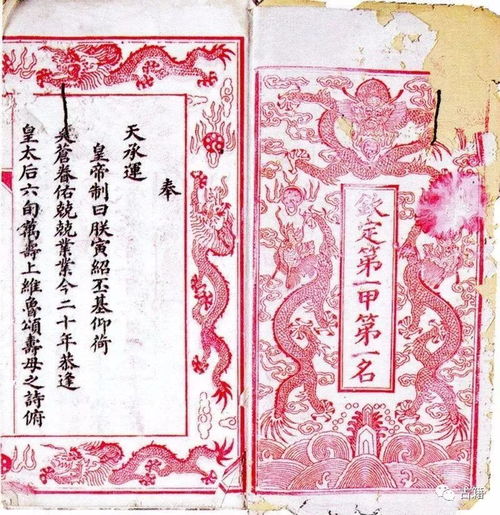 欽定第一甲第一名
奉
天承運
皇帝制曰朕寅紹丕基仰荷
蒼眷佑兢兢業業今二十年恭逢
皇太后六旬萬壽上維魯頌壽母之詩俯
古籍